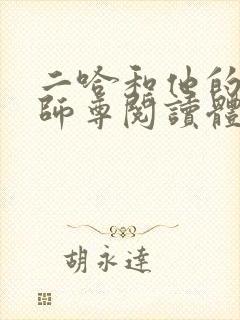 二哈和他的
師尊閱讀體
胡永達